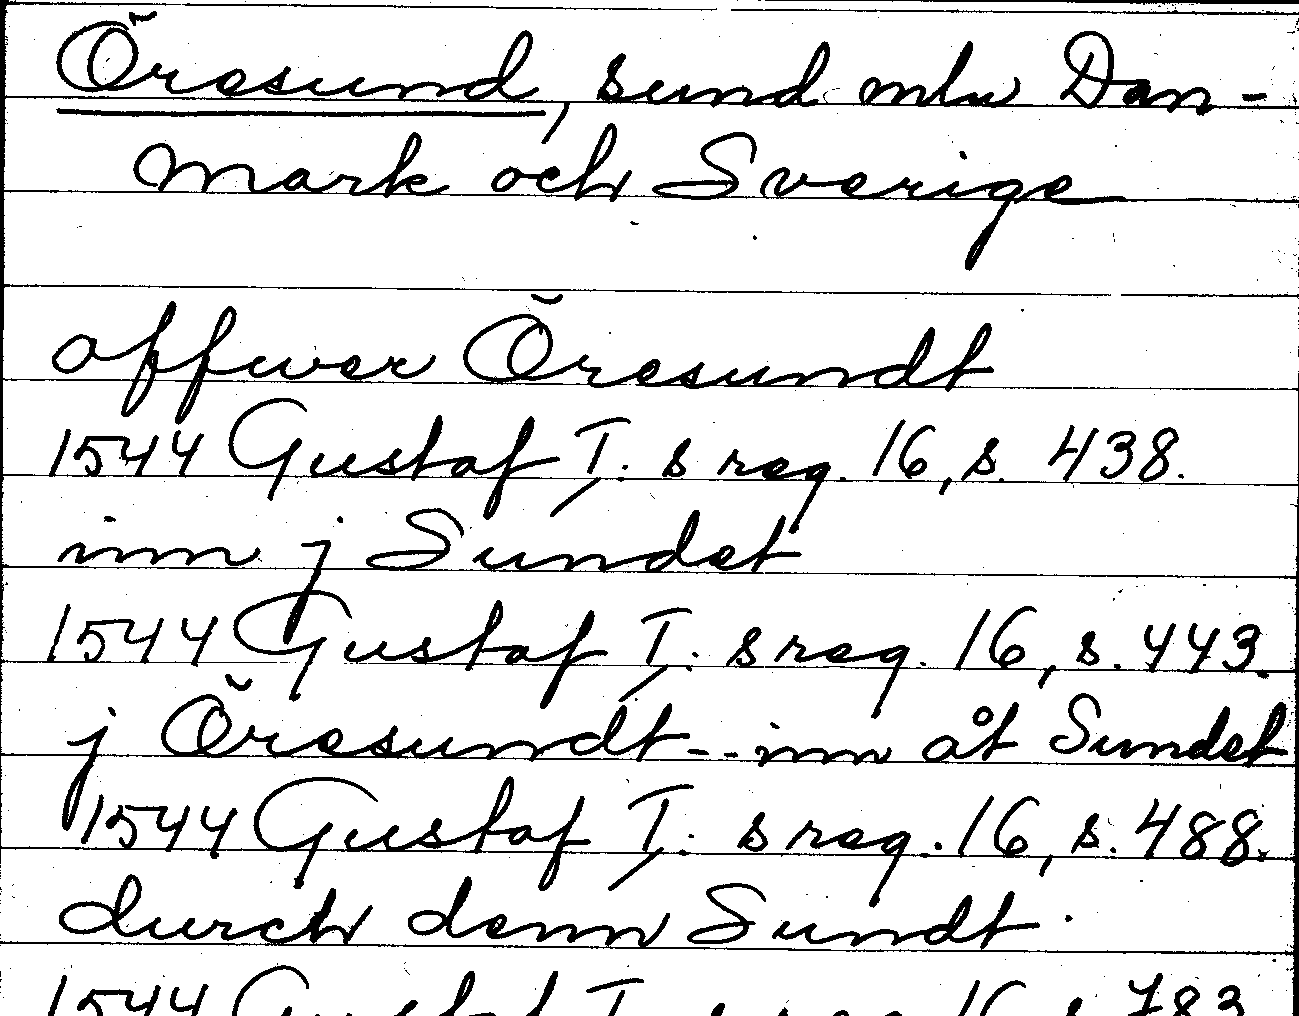 Öresund, sund mln Dan-
mark och Sverige
offwer Öresundt
1544 Gustaf I:s reg. 16, s. 438.
inn j Sundet
1544 Gustaf I:s reg. 16, s. 443.
j Öresundt -- inn åt Sundet
1544 Gustaf I:s reg. 16, s. 488.
durch denn Sundt.
1544 Gustaf I:s reg. 16, s. 783